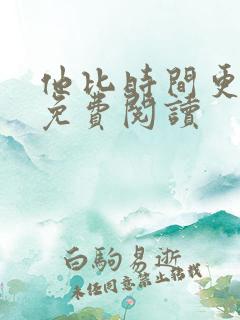 他比時間更
免費閱讀
白駒易逝
未經同意禁止轉載